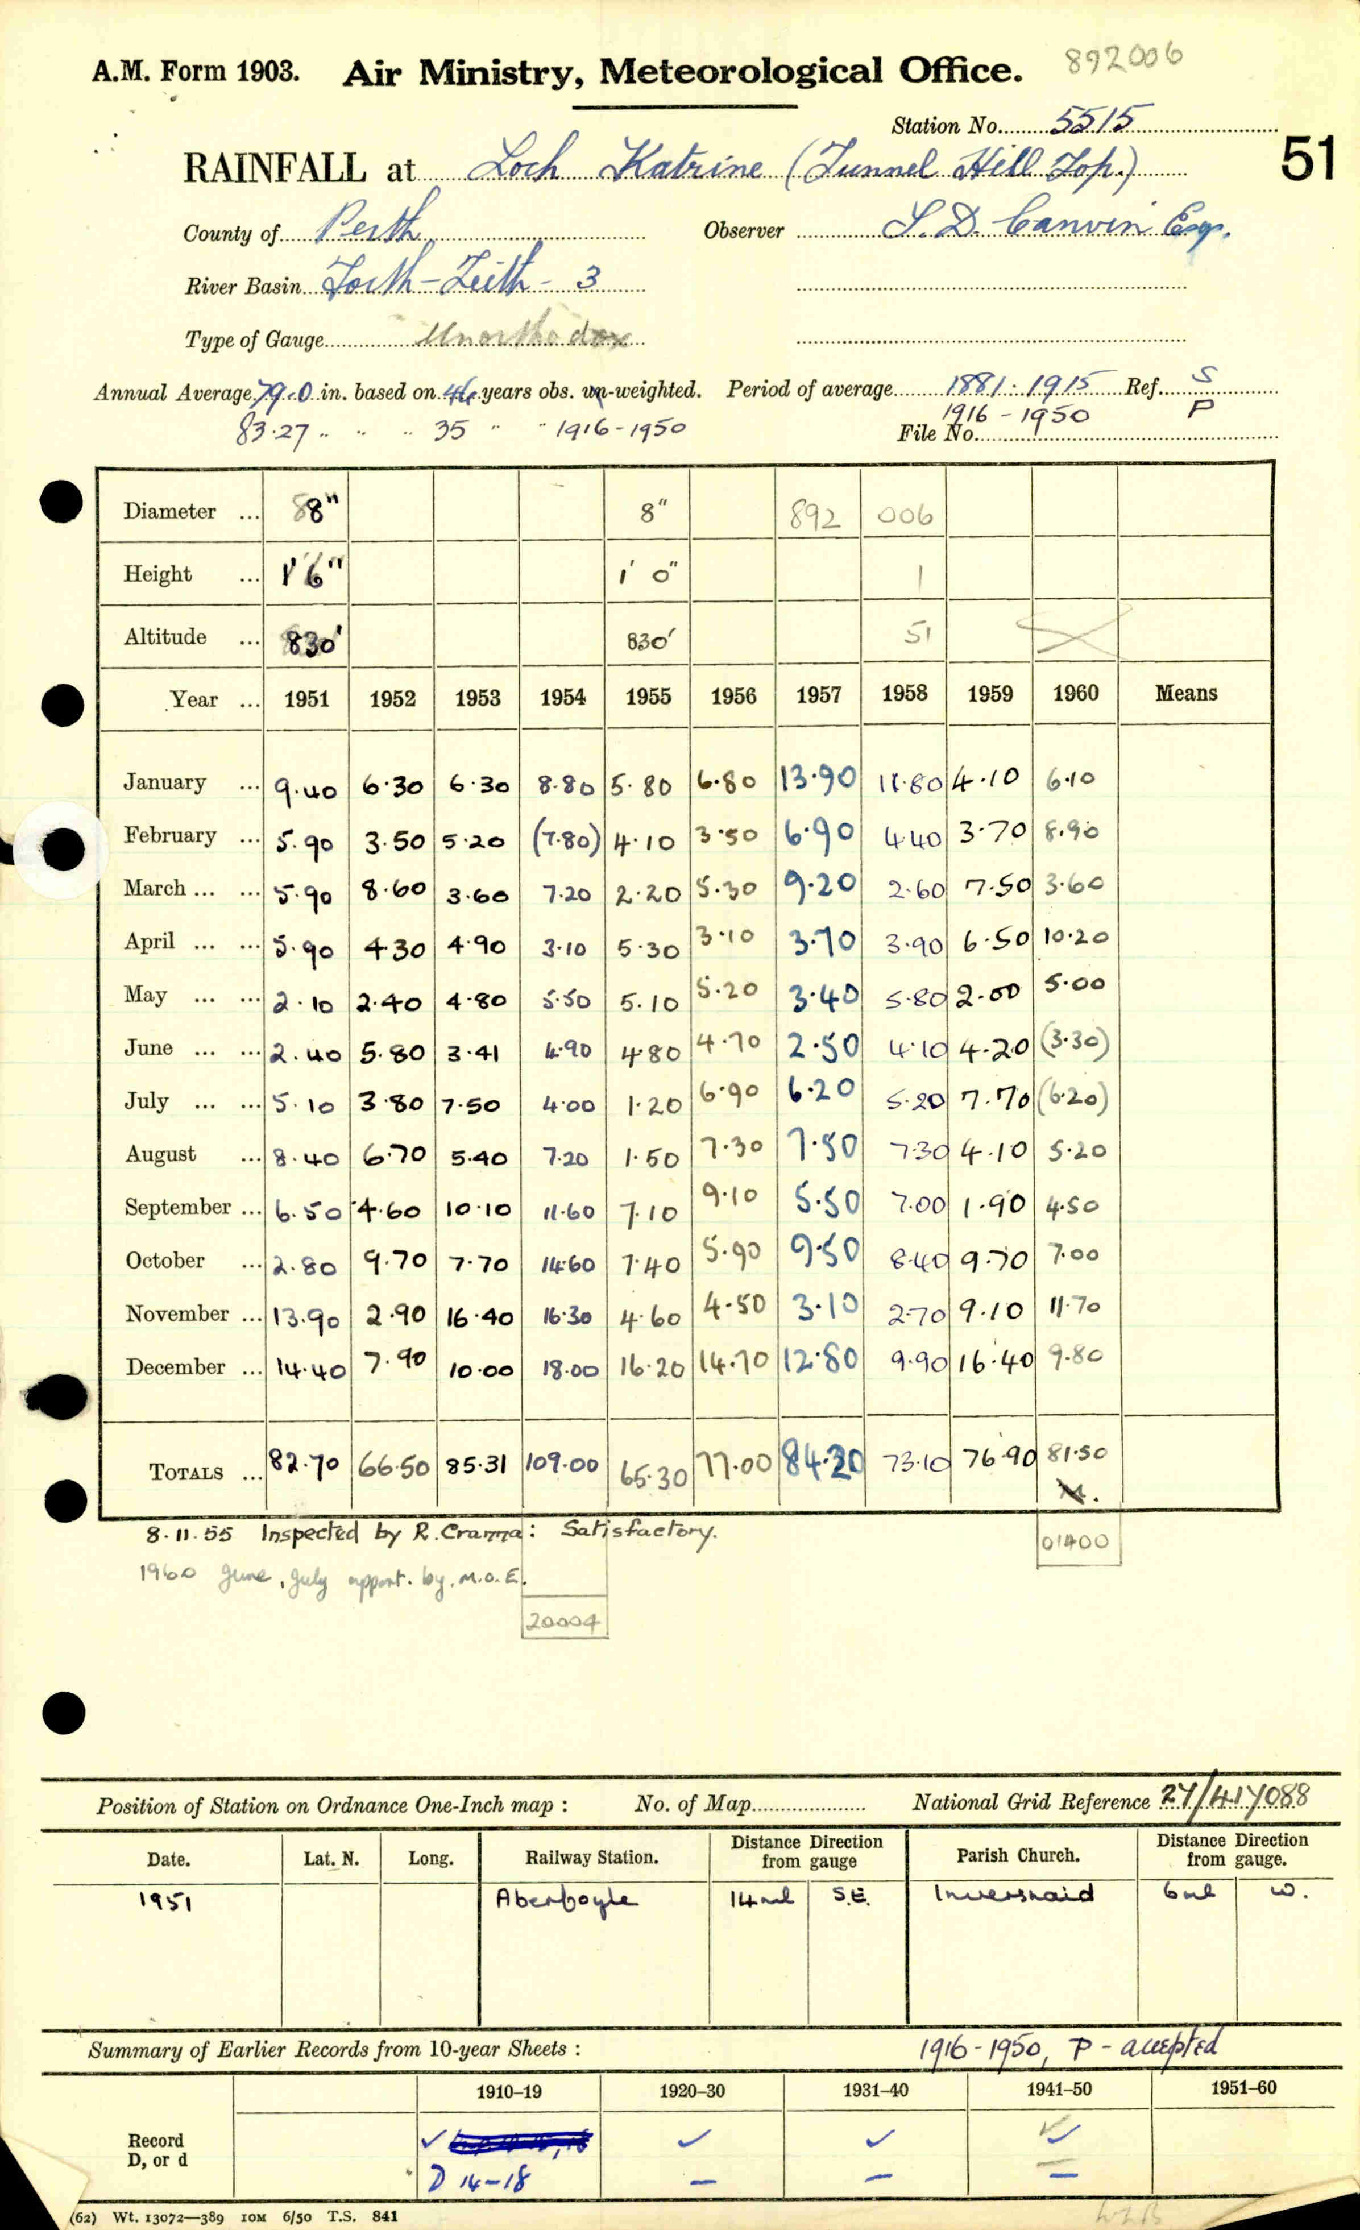 892006
A.M. Form 1903. Air Ministry, Meteorological Office.
Station No. 5515
51
RAINFALL at Loch Katrine (Tunnel Hill Top.)
County of Perth Observer S. D. Canvin Esq.
River Basin Forth-Teith - 3
Type of Gauge Unorthodox
Annual Average 79.0 in. based on 46 years obs. un-weighted. Period of average 1881-1915 Ref. S
83.27 " " " 35 " " 1916-1950 1916-1950 P
File No.
Diameter ... 8" 8" 892 006
Height ... 1'6" 1' 0" 1
Altitude ... 830' 830' 51
Year ... 1951 1952 1953 1954 1955 1956 1957 1958 1959 1960 Means
January ... 9.40 6.30 6.30 8.80 5.80 6.80 13.90 11.80 4.10 6.10
February ... 5.90 3.50 5.20 (7.80) 4.10 3.50 6.90 4.40 3.70 8.90
March ... ... 5.90 8.60 3.60 7.20 2.20 5.30 9.20 2.60 7.50 3.60
April ... ... 5.90 4.30 4.90 3.10 5.30 3.10 3.70 3.90 6.50 10.20
May ... ... 2.10 2.40 4.80 5.50 5.10 5.20 3.40 5.80 2.00 5.00
June ... ... 2.40 5.80 3.41 4.90 4.80 4.70 2.50 4.10 4.20 (3.30)
July ... ... 5.10 3.80 7.50 4.00 1.20 6.90 6.20 5.20 7.70 (6.20)
August ... 8.40 6.70 5.40 7.20 1.50 7.30 7.50 7.30 4.10 5.20
September ... 6.50 4.60 10.10 11.60 7.10 9.10 5.50 7.00 1.90 4.50
October ... 2.80 9.70 7.70 14.60 7.40 5.90 9.50 8.40 9.70 7.00
November ... 13.90 2.90 16.40 16.30 4.60 4.50 3.10 2.70 9.10 11.70
December ... 14.40 7.90 10.00 18.00 16.20 14.70 12.80 9.90 16.40 9.80
TOTALS ... 82.70 66.50 85.31 109.00 65.30 77.00 84.20 73.10 76.90 81.50
M.
8.11.55 Inspected by R. Cranna: Satisfactory.
01400
1960 June, July apport. by. M.O.E.
20004
Position of Station on Ordnance One-Inch map : No. of Map National Grid Reference 27/417088
Date. Lat. N. Long. Railway Station. Distance Direction from gauge Parish Church. Distance Direction from gauge.
1951 Aberfoyle 14 ml S.E. Inversnaid 6 ml W.
Summary of Earlier Records from 10-year Sheets : 1916-1950, P - accepted
1910–19 1920–30 1931–40 1941–50 1951–60
Record ✓ ✓ ✓ ✓
D, or d D 14-18 – – –
(62) Wt. 13072—389 10M 6/50 T.S. 841